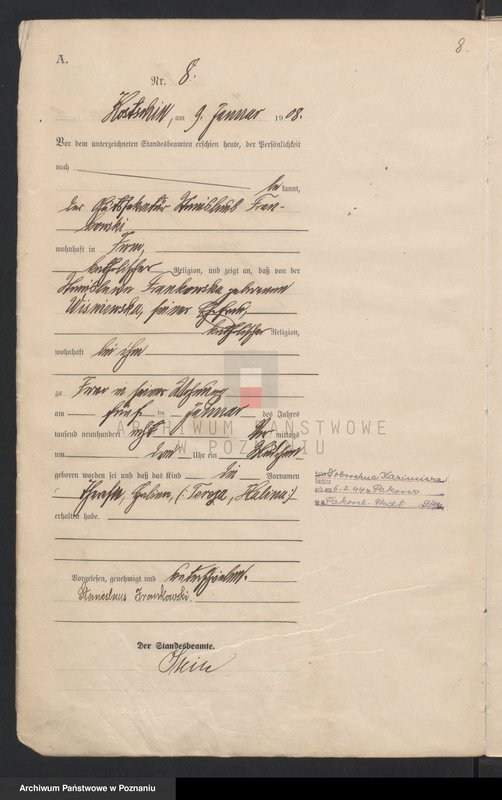 8.
A.
Nr. 8.
Kostschin, am 9. Januar 1908.
Vor dem unterzeichneten Standesbeamten erschien heute, der Persönlichkeit
nach
be kannt,
der Gutssekretär Stanislaus Fran-
kowski
wohnhaft in Iwno,
katholischer Religion, und zeigt an, daß von der
Stanislawa Frankowska geborenen
Wisniewska, seiner Ehefrau,
katholischer Religion,
wohnhaft bei ihm
zu Iwno in seiner Wohnung
am fünften Januar des Jahres
tausend neunhundert acht Vor mittags
um drei Uhr ein Mädchen
geboren worden sei und daß das Kind die Vornamen
Therese, Helene, (: Tereza, Halina :)
erhalten habe.
Vorgelesen, genehmigt und unterschrieben.
Stanislaus Frankowski.
Der Standesbeamte.
Kazimierz
6.2.44
ARCHIWUM PAŃSTWOWE
W POZNANIU
Archiwum Państwowe w Poznaniu